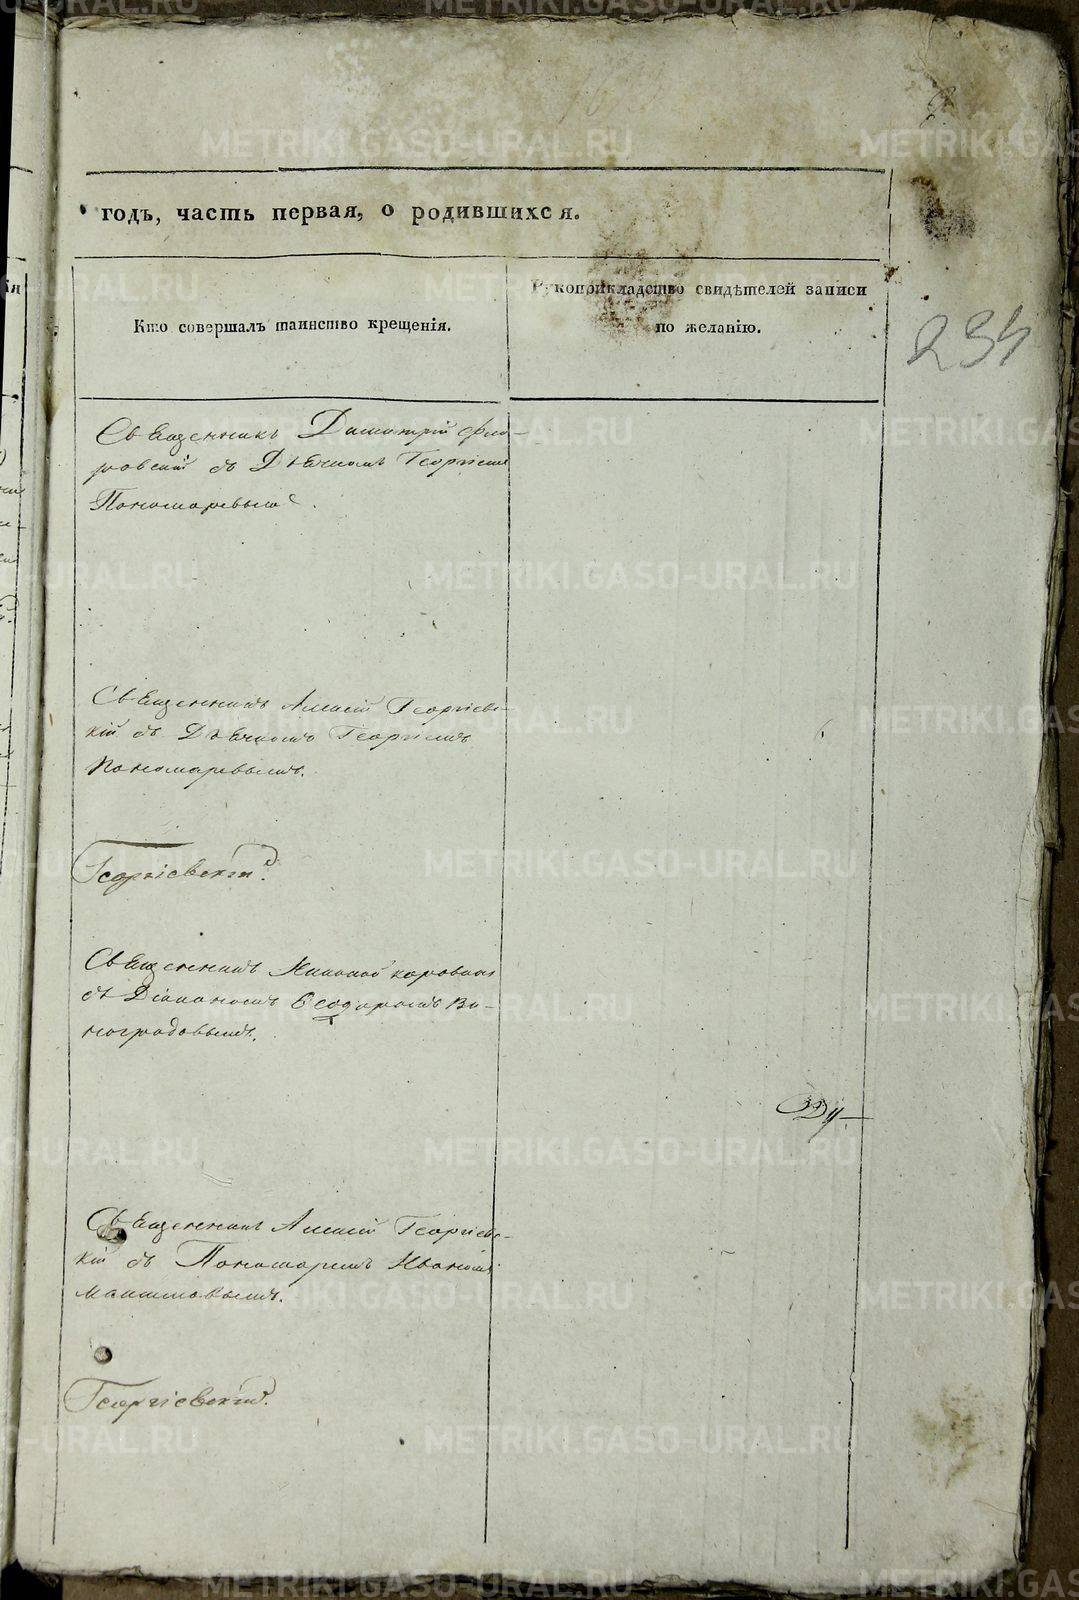 234
годъ, часть первая, о родившихся.
Кто совершалъ таинство крещенія.
Рукоприкладство свидѣтелей записи
по желанію.
Священникъ Димитрій Фло-
ровскій съ Дьячкомъ Георгіемъ
Пономаревымъ.
Священникъ Алексій Георгіевс-
кій съ Дьячкомъ Георгіемъ
Пономаревымъ.
Георгіевскій.
Священникъ Николай Коровинъ
съ Діакономъ Ѳеодоромъ Ви-
ноградовымъ.
Священникъ Алексій Георгіевс-
кій съ Пономаремъ Иваномъ
Георгіевскій.
METRIKI.GASO-URAL.RU